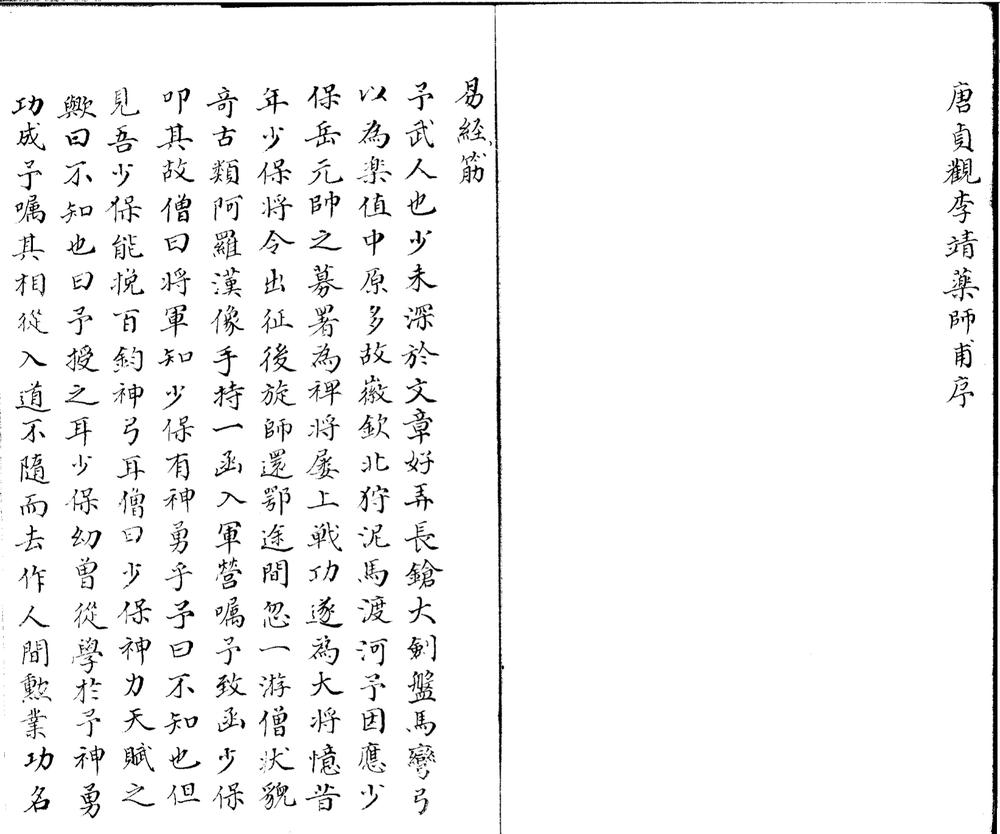 唐貞觀李靖薬師甫序
易経筋
予武人也少未深於文章好弄長鎗大剣盤馬彎弓
以為楽值中原多故徽欽北狩泥馬渡河予因應少
保岳元帥之募署為裨将屡上戦功遂為大将憶昔
年少保将令出征後旋師還鄂途間忽一游僧状貌
奇古類阿羅漢像手持一函入軍營嘱予致函少保
叩其故僧曰将軍知少保有神勇乎予曰不知也但
見吾少保能挽百鈞神弓耳僧曰少保神力天賦之
歟曰不知也曰予授之耳少保幼曽從學於予神勇
功成予嘱其相從入道不隨而去作人間勲業功名